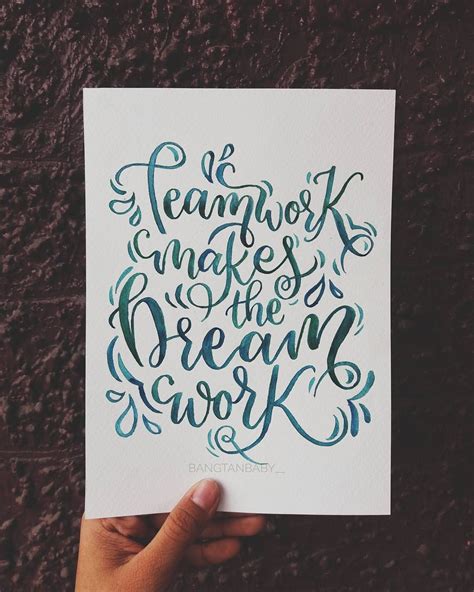 Teamwork
makes
the
Dream
work
BANGTANBABY__